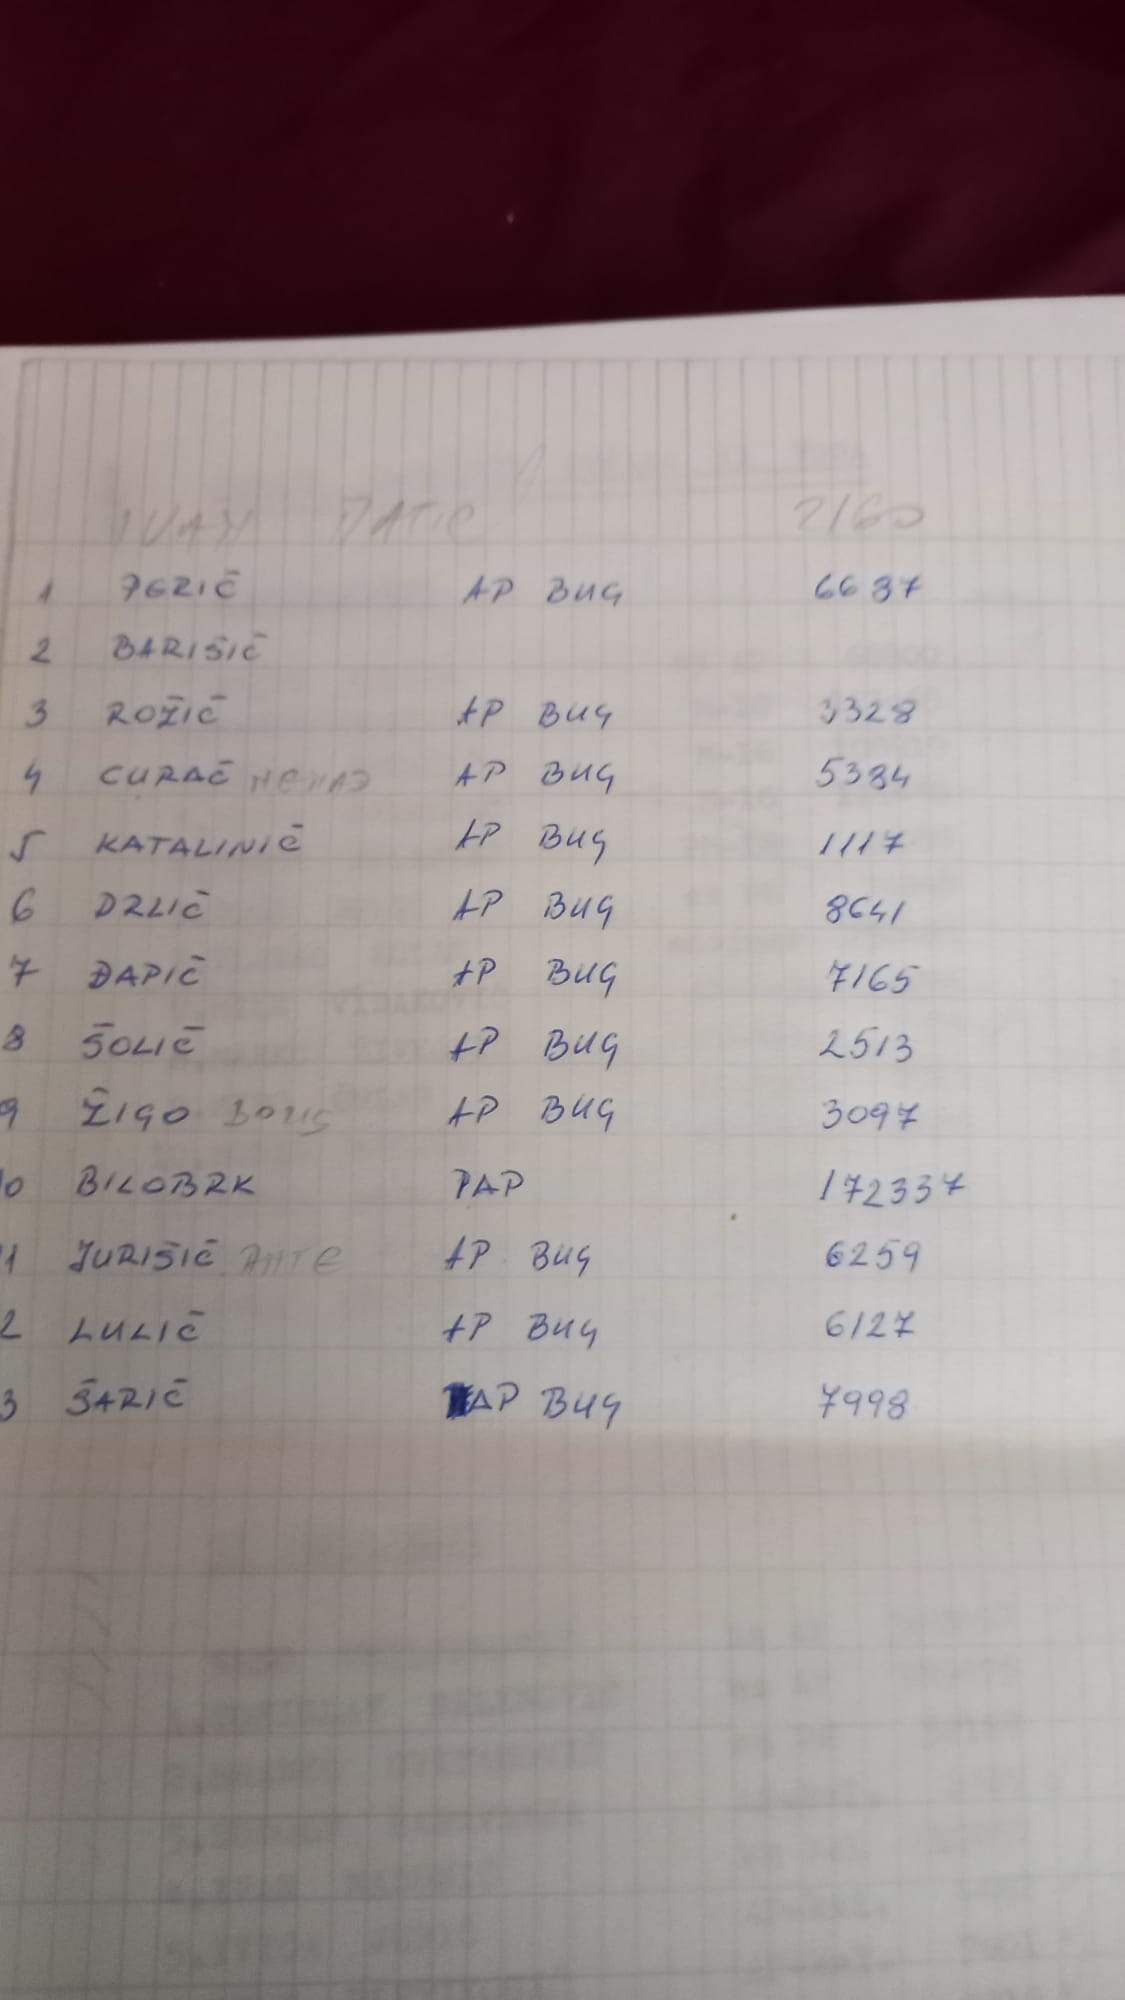 IVAN MATIĆ 2160
1 PERIĆ AP BUG 6687
2 BARIŠIĆ
3 ROŽIĆ AP BUG 3328
4 CURAĆ NENAD AP BUG 5384
5 KATALINIĆ AP BUG 1117
6 DRLIĆ AP BUG 8641
7 ĐAPIĆ AP BUG 7165
8 ŠOLIĆ AP BUG 2513
9 ŽIGO BORIS AP BUG 3097
0 BILOBRK PAP 172337
1 JURIŠIĆ ANTE AP BUG 6259
2 LULIĆ AP BUG 6127
3 ŠARIĆ AP BUG 7998